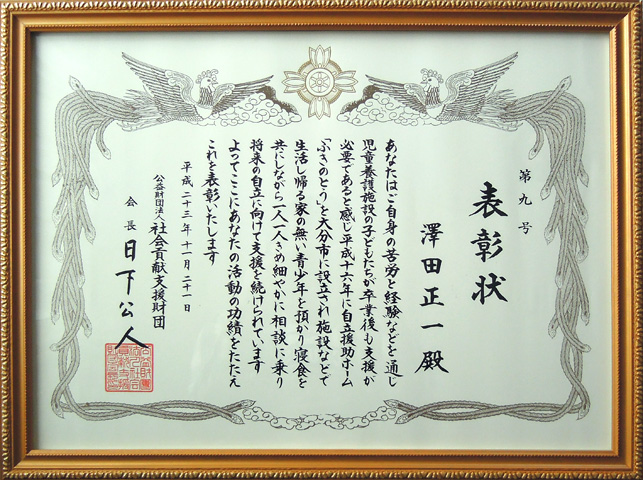 第九号
表彰状
澤田正一殿
あなたはご自身の苦労と経験などを通じ
児童養護施設の子どもたちが卒業後も支援が
必要であると感じ平成十六年に自立援助ホーム
「ふきのとう」を大分市に設立され施設などで
生活し帰る家の無い青少年を預かり寝食を
共にしながら一人一人きめ細やかに相談に乗り
将来の自立に向けて支援を続けられています
よってここにあなたの活動の功績をたたえ
これを表彰いたします
平成二十三年十一月二十一日
公益財団法人社会貢献支援財団
会長日下公人